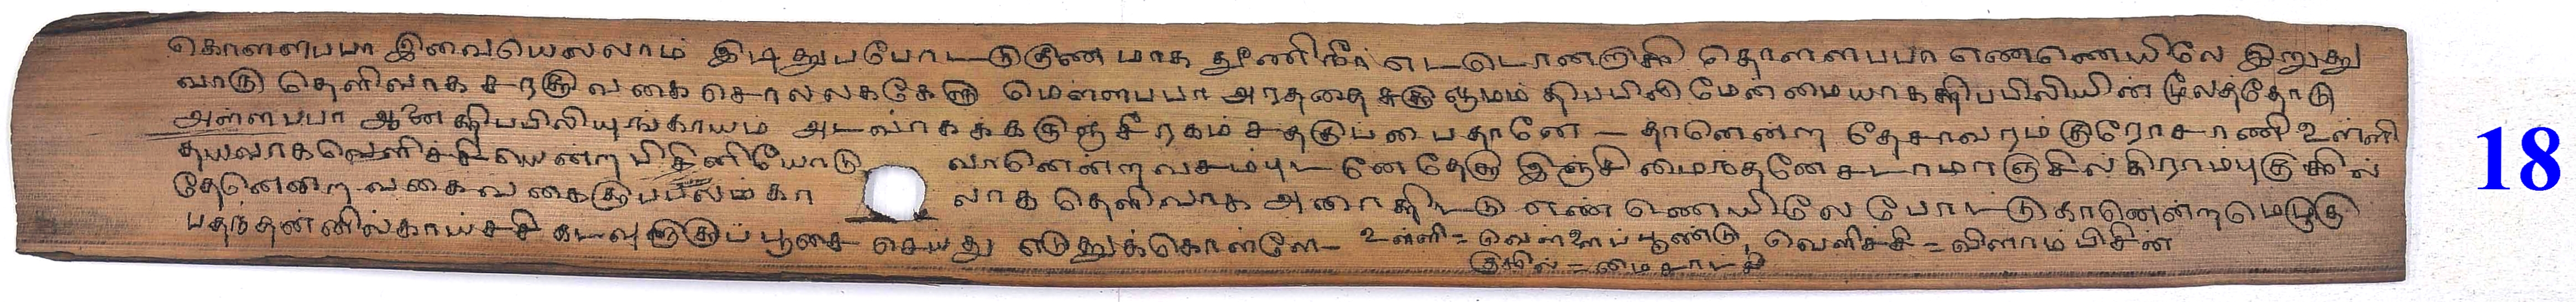 கொளளபபா இவையெலலாம் இடிதுபபோடடுகுண மாக துணிநீர் எடடொனறாககி கொளளபபா எணணெயிலே இறுது
வாரு தெளிவாக சரகுவகை சொலலககேளு மெளளபபா அரததை சுகு ஓமம் திபபிலி மேன்மையாக திபபிலியின் மூலத்தோடு
அள்ளபபா ஆனைதிபபிலியுங்காயம் அடவாகக்கருஞ் சீரகம் சதகுபபைதானே - தானென்ற தேசாவரம் குரோசாணி உள்ளி
தயவாகவெளிச்சி யென்ற பிசினியோடு வானென்ற வசம்புடனே தேளு இஞ்சி மைந்தனே சடாமாஞ்சில் கிராம்பு குகில்
தேனென்ற வகைவகைகுபபலம் கா லாக தெளிவாக அரைததிடடு எண்ணெயிலே போடடு கானென்ற மெழுகு
பதந்தன்னில்காய்ச்சி கடவுளுகுப் பூசை செய்து எடுதுக்கொள்ளே - உள்ளி = வெள்ளைப்பூண்டு, வெளிச்சி = விளாம்பிசின்
குகில் = மைசாடசி
18